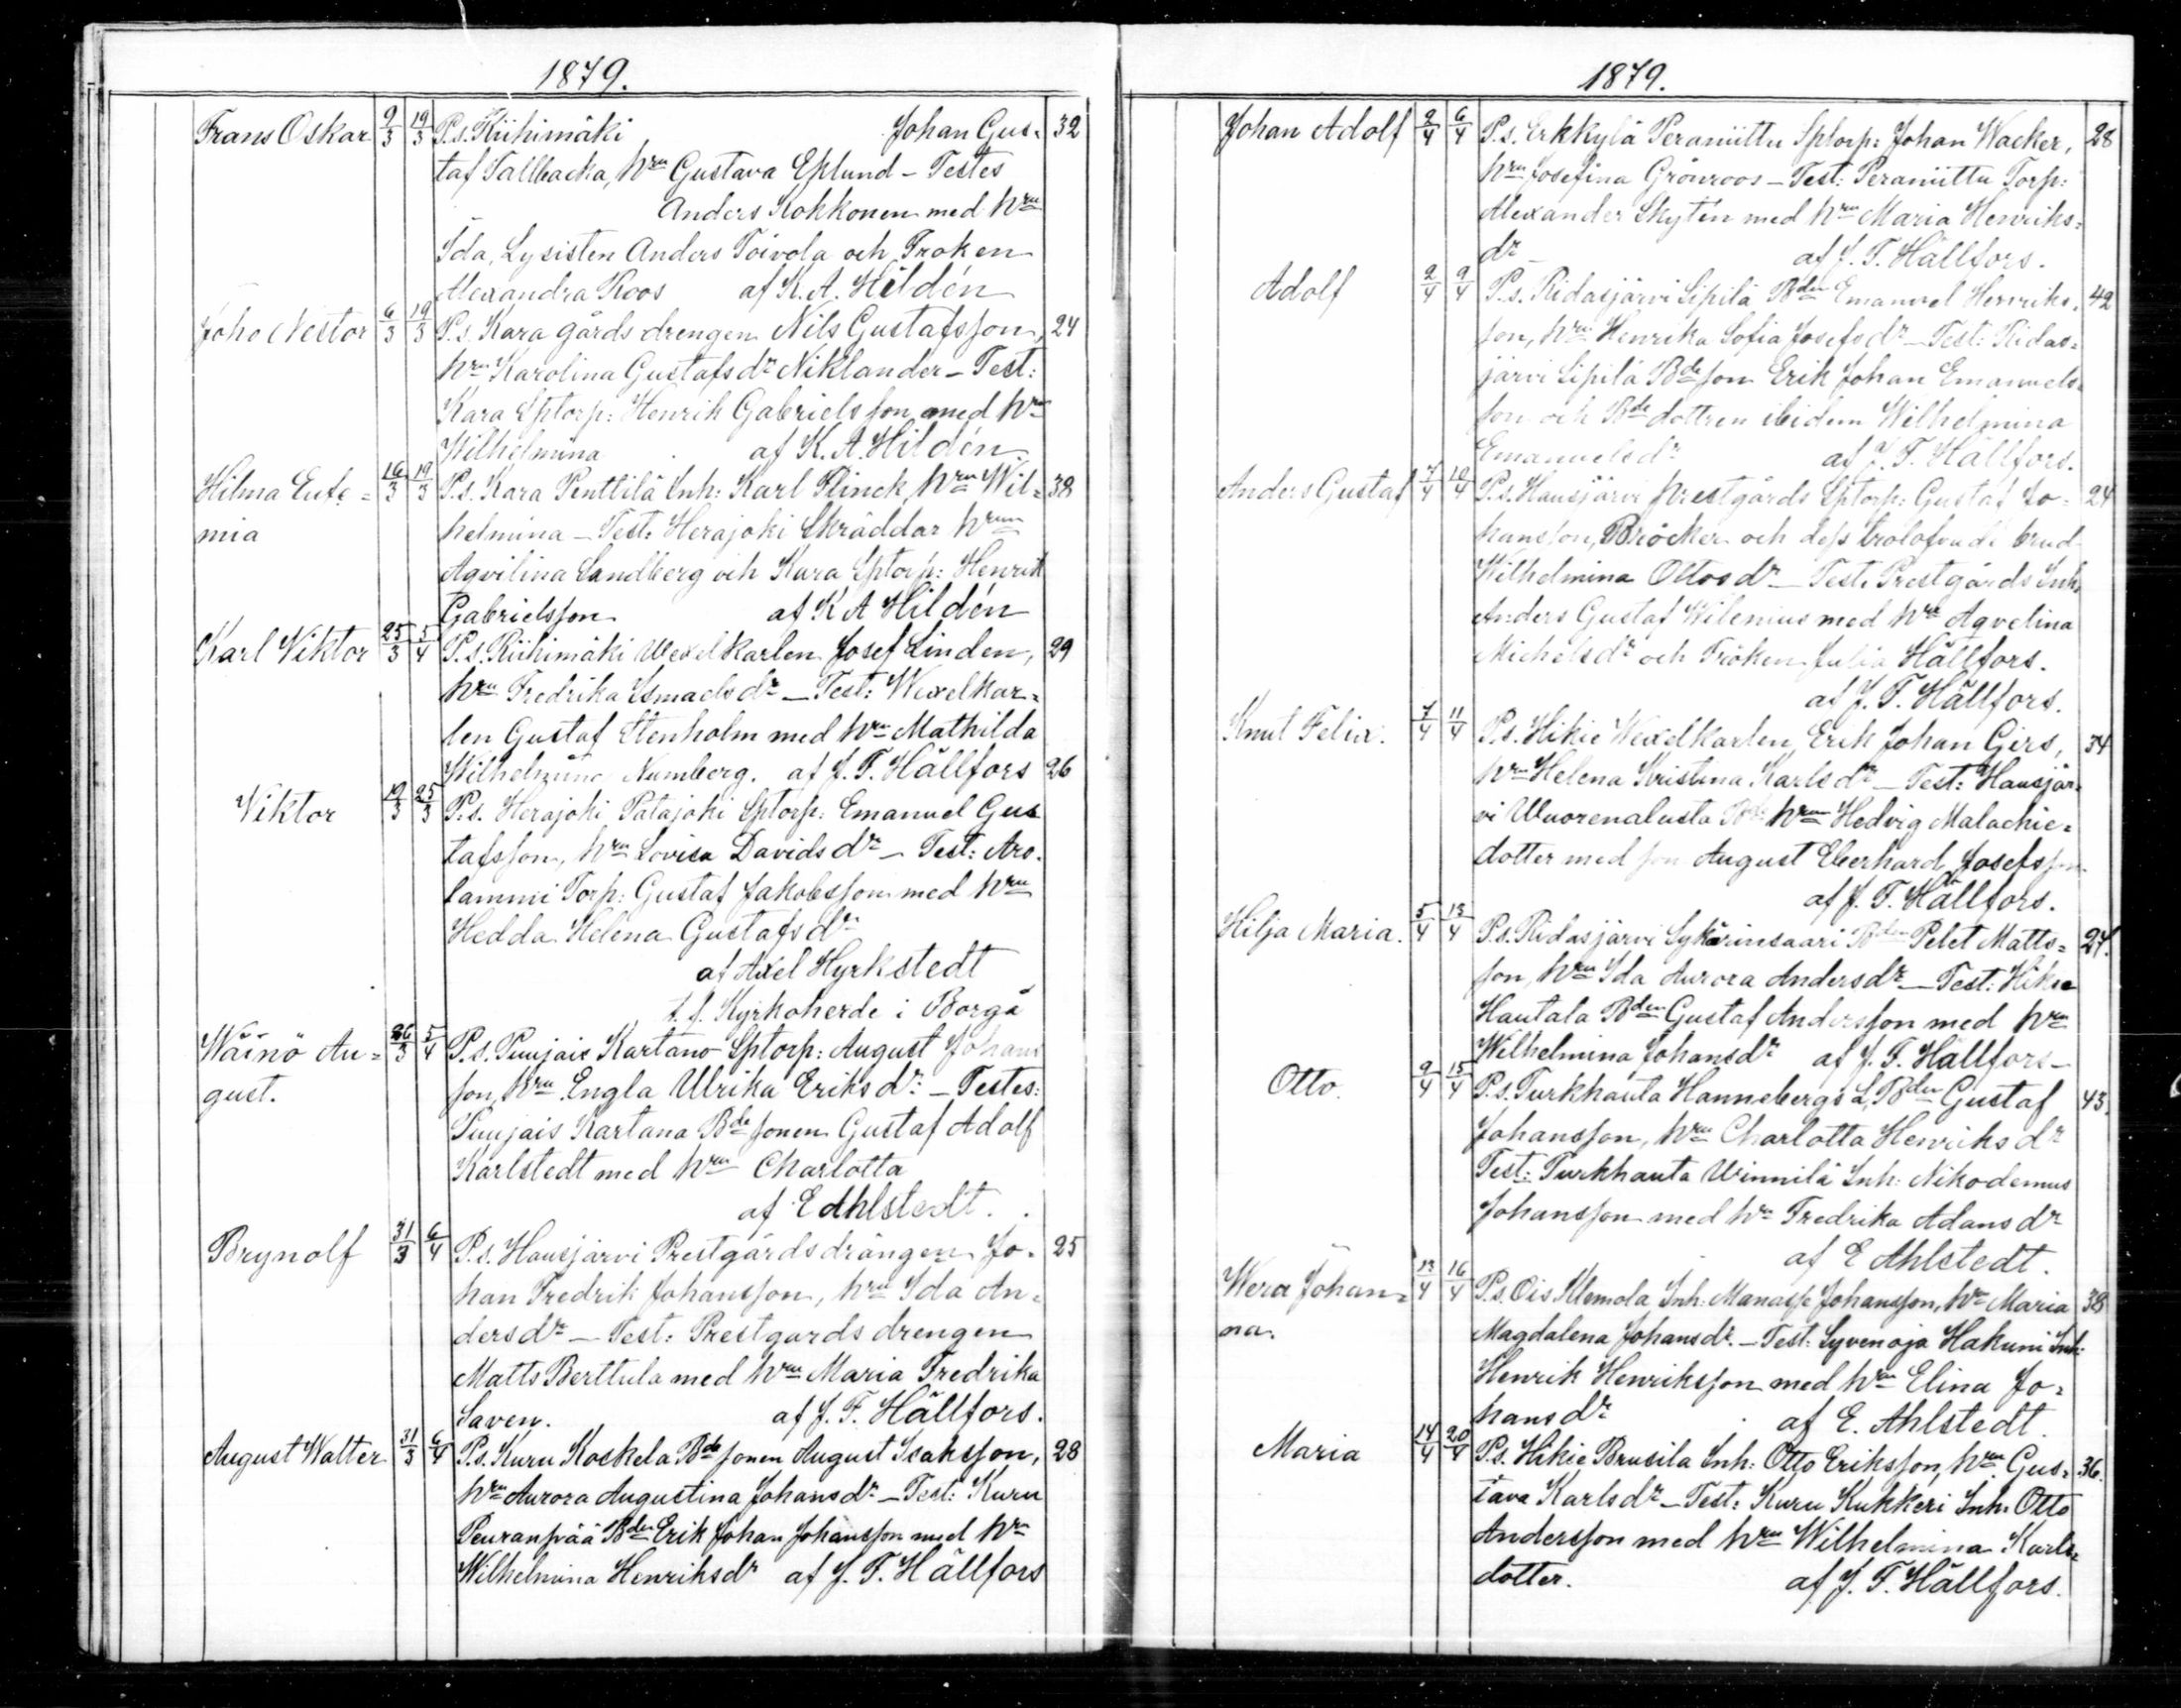 1879.
Frans Oskar 9/3 19/3 P.s. Riihimäki Johan Gus= 32
taf Tallbacka, hru Gustava Eklund – Testes
Anders Kokkonen med hru
Ida, Lysisten Anders Toivola och Fröken
Alexandra Roos af K. A. Hildén
Joho Nestor 6/3 19/3 P.s. Kara gårds drengen Nils Gustafsson, 24
hru Karolina Gustafsdr Niklander – Test:
Kara Sptorp: Henrik Gabrielsson med hru
Wilhelmina af K. A. Hildén
Hilma Eufe= 16/3 19/3 P.s. Kara Penttilä Inh: Karl Flinck, hru Wil= 38
mia helmina – Test: Herajoki Skräddar hrun
Aqvilina Sandberg och Kara Sptorp: Henrik
Gabrielsson af K A Hildén
Karl Viktor 25/3 5/4 P.s. Riihimäki Wexelkarlen Josef Linden, 29
hru Fredrika Ismaelsdr – Test: Wexelkar=
len Gustaf Stenholm med hru Mathilda
Wilhelmina Numberg. af J. F. Hällfors 26
Viktor 19/3 25/3 P.s. Herajoki Patajoki Sptorp: Emanuel Gus
tafsson, hru Lovisa Davidsdr – Test: Aro.
lammi Torp: Gustaf Jakobsson med hru
Hedda Helena Gustafsdr
af Axel Hyrkstedt
t. f. Kyrkoherde i Borgå
Wäinö Au= 26/3 5/4 P.s. Puujais Kartano Sptorp: August Johans
gust. son, hru Engla Ulrika Eriksdr – Testes:
Puujais Kartana Bde sonen Gustaf Adolf
Karlstedt med hru Charlotta
af E Ahlstedt.
Brynolf 31/3 6/4 P.s. Hausjärvi Prestgårdsdrängen Jo= 25
han Fredrik Johansson, hru Ida An=
dersdr – Test: Prestgards drengen
Matts Berttula med hru Maria Fredrika
Saven. af J. F. Hällfors.
August Walter 31/3 6/4 P.s. Kuru Koskela Bde sonen August Isaksson, 28
hru Aurora Augustina Johansdr – Test: Kuru
Peuranpää Bden Erik Johan Johansson med hru
Wilhelmina Henriksdr af J. F. Hällfors
1879.
Johan Adolf 2/4 6/4 P.s. Erkkylä Peraniittu Sptorp: Johan Wacker, 28
hru Josefina Grönroos – Test: Peraniittu Torp:
Alexander Skytén med hru Maria Henriks=
dr – af J. F. Hällfors.
Adolf 2/4 9/4 P.s. Ridasjärvi Sipilä Bden Emanuel Henriks= 42
son, hru Henrika Sofia Josefsdr – Test: Ridas=
järvi Sipilä Bde son Erik Johan Emanuels=
son och Bde dottren ibidem Wilhelmina
Emanuelsdr af J. F. Hällfors.
Anders Gustaf 7/4 10/4 P.s. Hausjärvi Prestgårds Sptorp: Gustaf Jo= 24
hansson, Bröcker och dess trolofvade brud
Wilhelmina Ottosdr – Test: Prestgårds Inh:
Anders Gustaf Wilenius med hru Aqvelina
Michelsdr och Fröken Julia Hällfors.
af J. F. Hällfors.
Knut Felix. 7/4 11/4 P.s. Hikie Wexelkarlen, Erik Johan Girs, 34
hru Helena Kristina Karlsdr – Test: Hausjär=
vi Wuorenalusta Bde hrun Hedvig Malachie=
dotter med son August Eberhard Josefsson
af J. F. Hällfors.
Hilja Maria. 5/4 13/4 P.s. Ridasjärvi Sykärinsaari Bden Petet Matts= 27.
son, hru Ida Aurora Andersdr – Test: Hikie
Hautala Bden Gustaf Andersson med hru
Wilhelmina Johansdr af J. F. Hällfors –
Otto. 9/4 15/4 P.s. Turkhauta Hannebergs L. Bden Gustaf 43.
Johansson, hru Charlotta Henriksdr
Test: Turkhauta Winnilä Inh: Nikodemus
Johansson med hru Fredrika Adamsdr
af E Ahlstedt.
Wera Johan= 13/4 16/4 P.s. Ois Klemola Inh: Manasse Johansson, hru Maria 38
na. Magdalena Johansdr. – Test: Syvenoja Hakuni Inh:
Henrik Henriksson med hru Elina Jo=
hansdr af E. Ahlstedt.
Maria 14/4 20/4 P.s. Hikie Brusila Inh: Otto Eriksson, hru Gus= 36.
tava Karlsdr – Test: Kuru Kukkeri Inh: Otto
Andersson med hru Wilhelmina Karls=
dotter. af J. F. Hällfors.